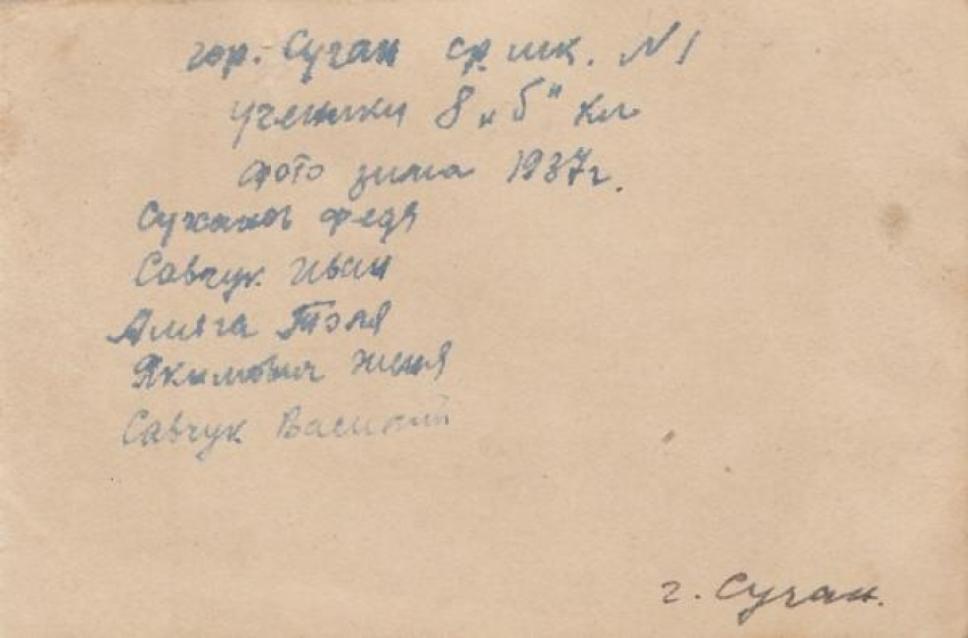 гор. Сучан ср. шк. N 1
ученики 8 „Б" кл
фото зима 1937г.
Суханов Федя
Савчук Иван
Толя
Якимович Женя
Савчук Василий
г. Сучан.